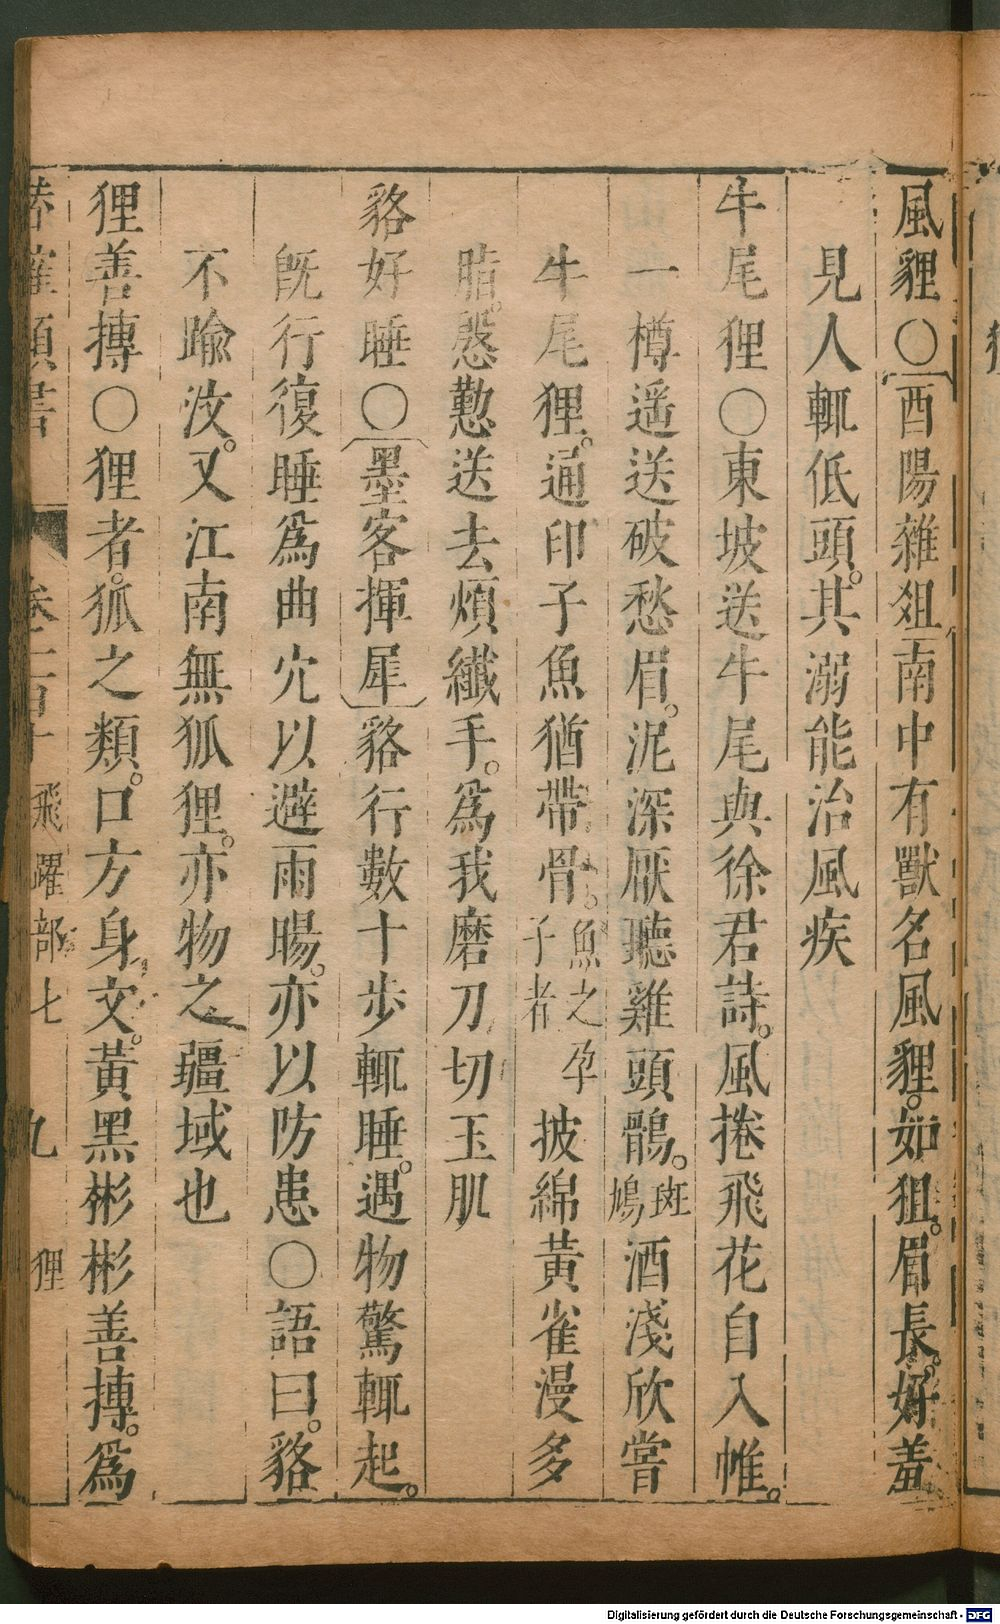 風貍○酉陽雜俎南中有獸名風貍。如狙。眉長。好羞
見人輒低頭。其溺能治風疾
牛尾狸○東坡送牛尾與徐君詩。風捲飛花自入帷。
一樽遥送破愁眉。泥深厭聽雞頭鶻。斑鳩酒淺欣嘗
牛尾狸。通印子魚猶帶骨。魚之孕子者披綿黃雀漫多
脂。慇懃送去煩纖手。爲我磨刀切玉肌
貉好睡○墨客揮犀貉行數十步輒睡。遇物驚輒起。
旣行復睡爲曲穴以避雨暘。亦以防患○語曰。貉
不踰汶。又江南無狐狸。亦物之疆域也
狸善摶○狸者。狐之類。口方身文。黃黑彬彬善摶。爲
類書 飛躍部七 九 狸
Digitalisierung gefördert durch die Deutsche Forschungsgemeinschaft - DFG